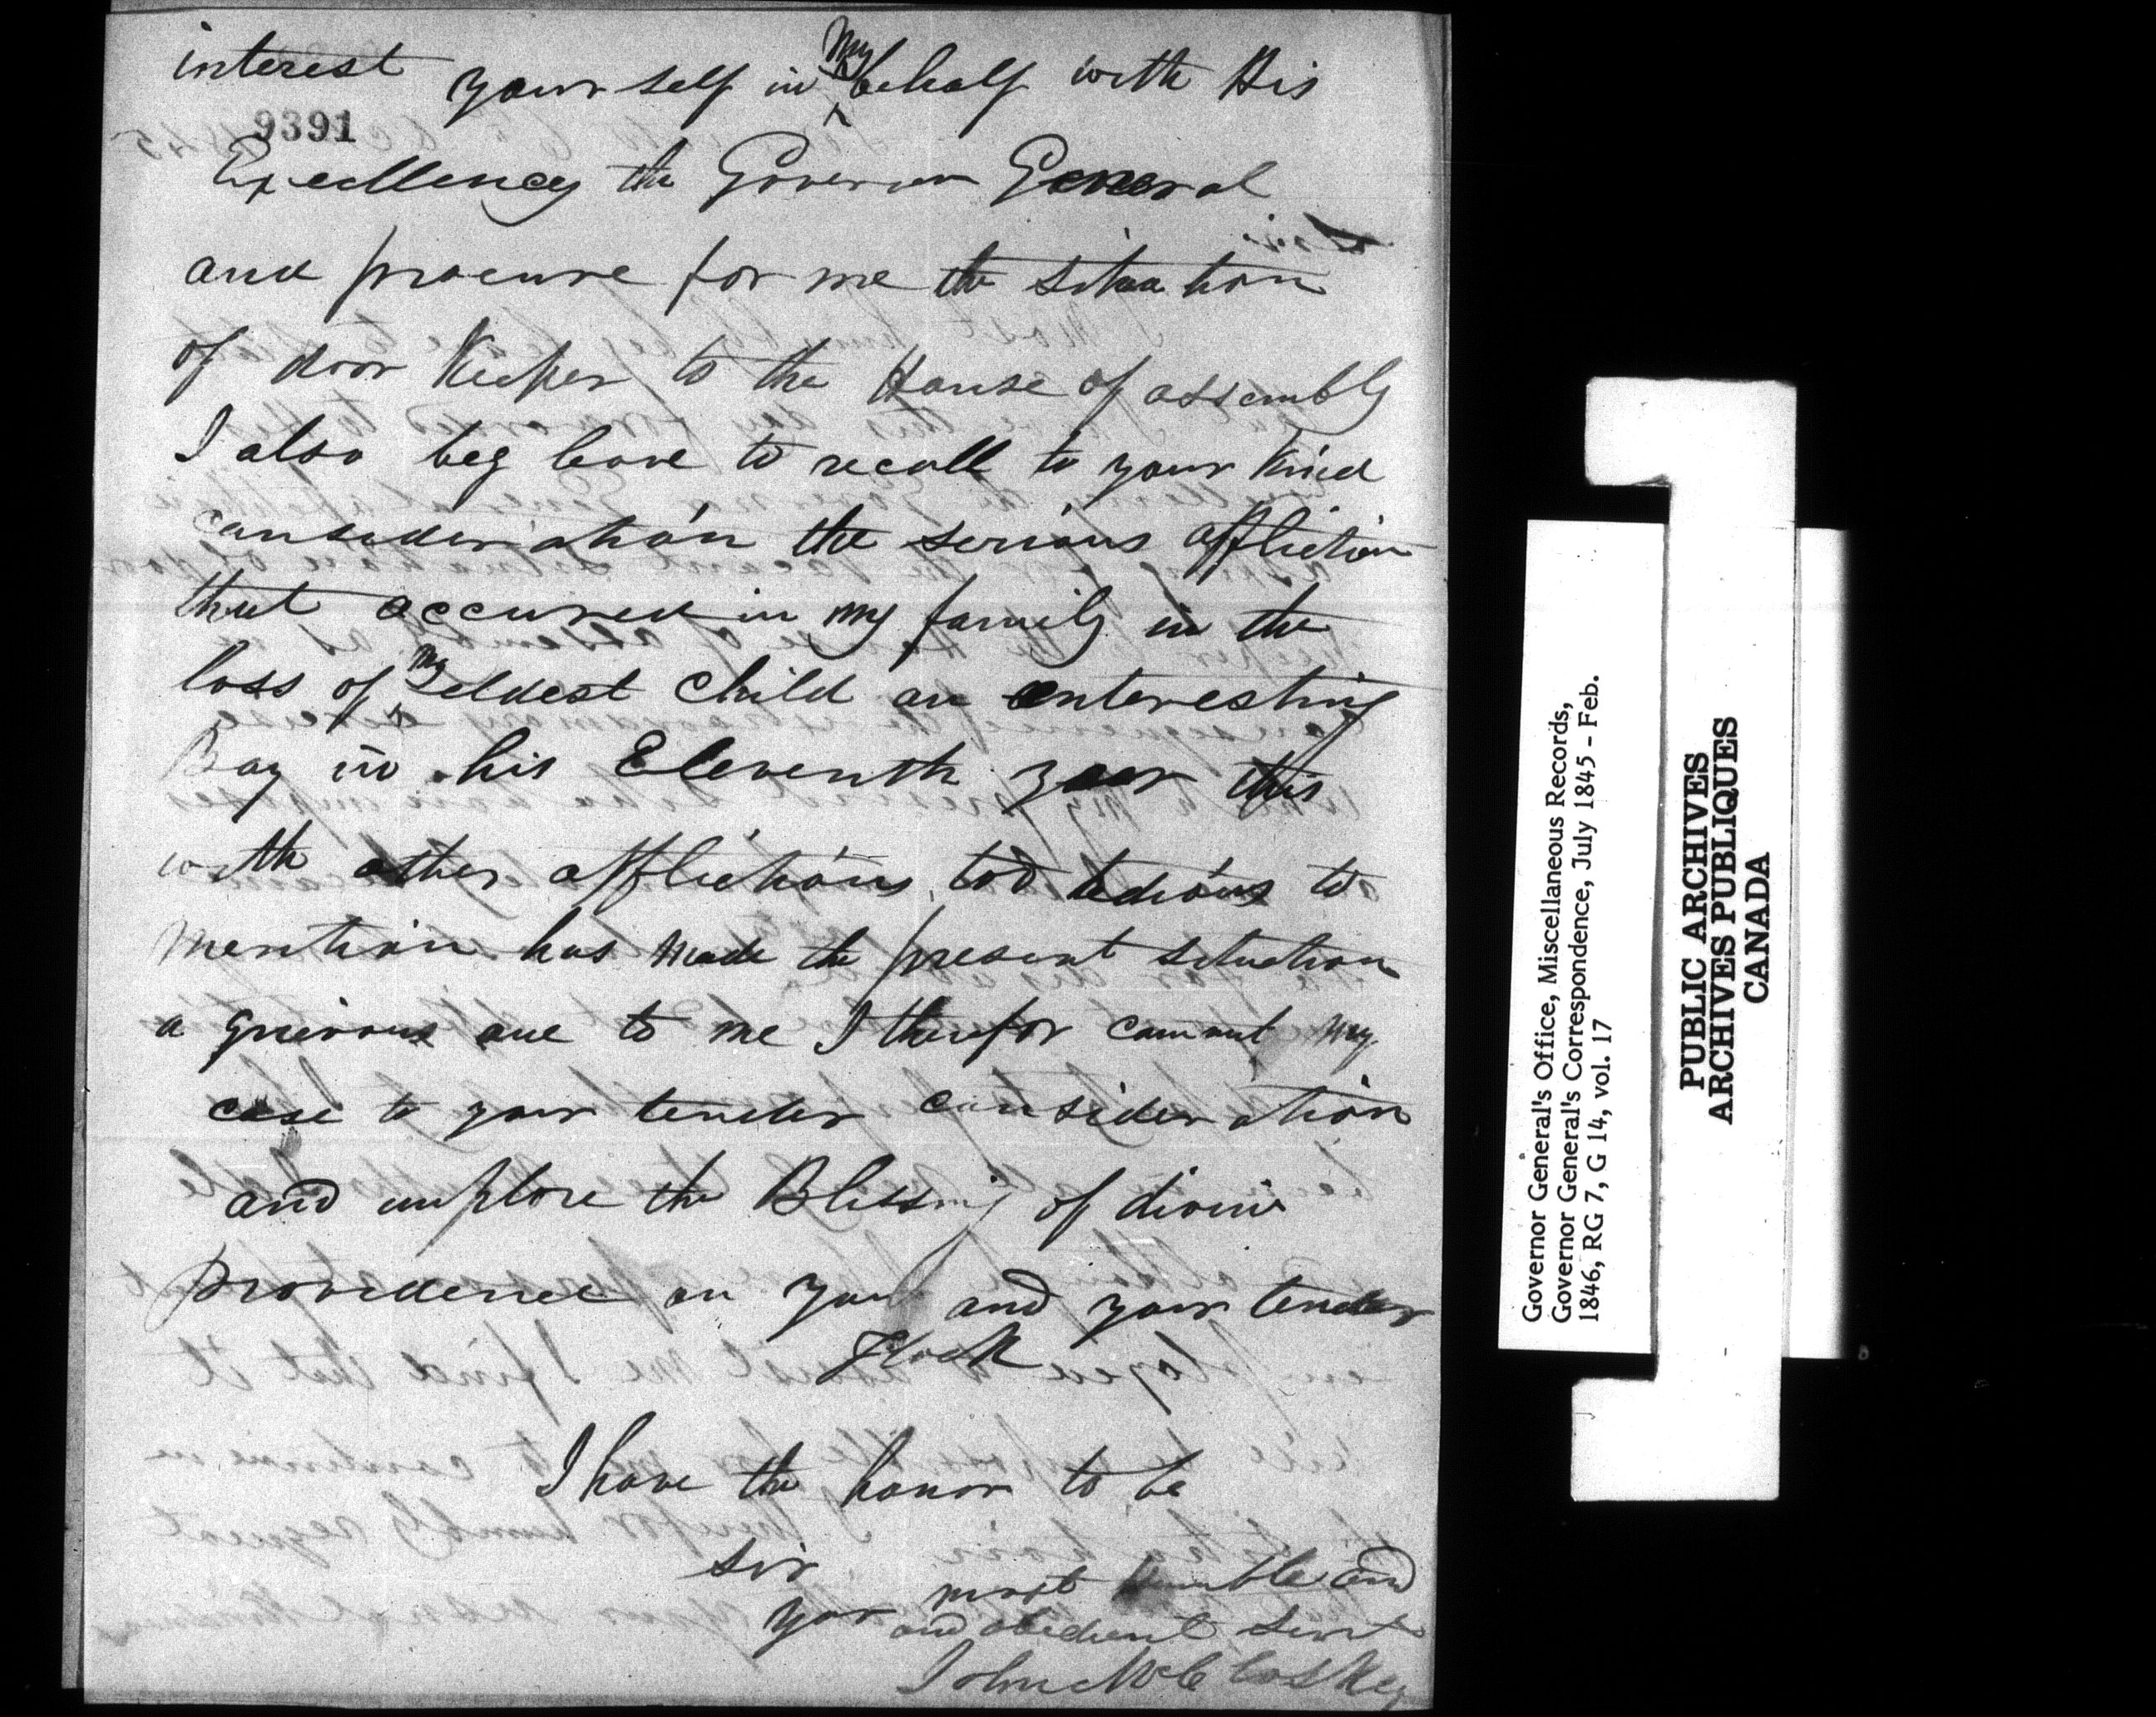 interest your self in My behalf with His
9391
Excellency the Governor General
and procure for me the situation
of door Keeper to the House of assembly
I also beg leave to recall to your Kind
consideration the serious affliction
that occured in my family in the
loss of My eldest Child an enteresting
Boy in his Eleventh year this
with other afflictions too tedious to
Mention has made the present situation
a grievous one to me I therefor commit My
case to your tender consideration
and implore the Blessing of divine
providence on you and your tender
Flock
I have the honor to be
Sir
your most humble and
and obedient Servt
John McCloskey
Governor General's Office, Miscellaneous Records,
Governor General's Correspondence, July 1845 - Feb.
1846, RG 7, G 14, vol. 17
PUBLIC ARCHIVES
ARCHIVES PUBLIQUES
CANADA